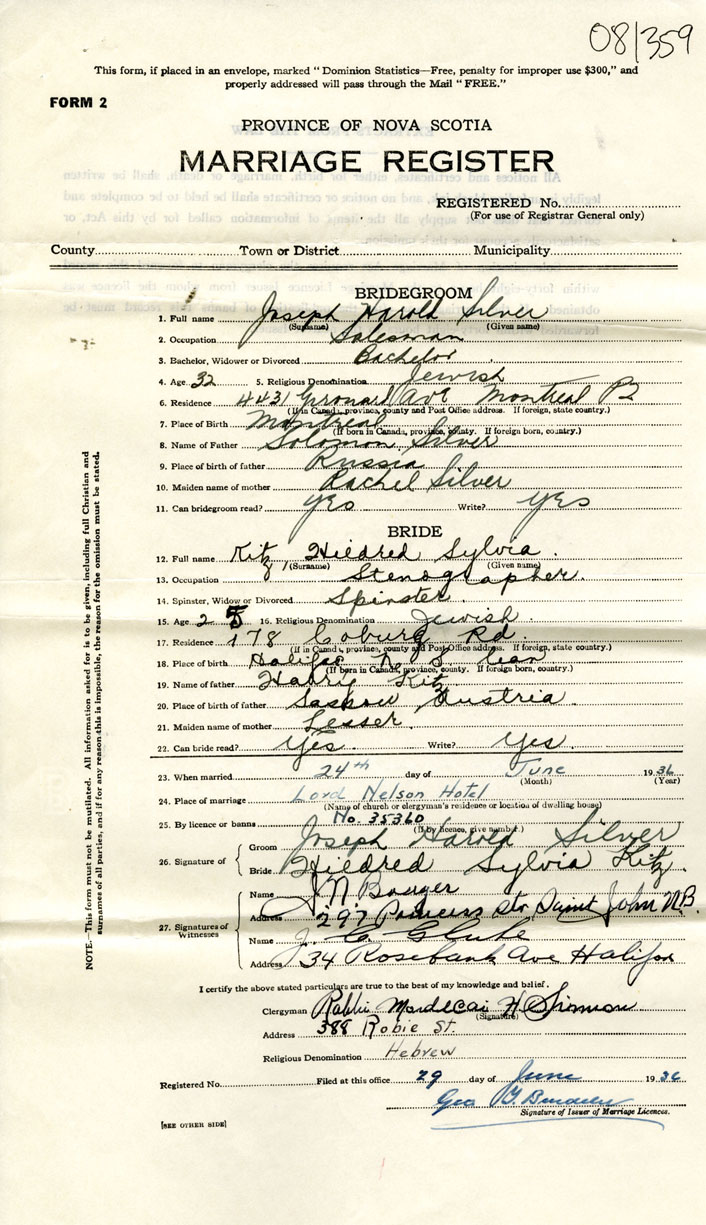 08/359
This form, if placed in an envelope, marked "Dominion Statistics—Free, penalty for improper use $300," and
properly addressed will pass through the Mail "FREE."
FORM 2
PROVINCE OF NOVA SCOTIA
MARRIAGE REGISTER
REGISTERED No.
(For use of Registrar General only)
County Town or District Municipality
BRIDEGROOM
1. Full name Joseph Harold Silver
(Surname) (Given name)
2. Occupation Salesman
3. Bachelor, Widower or Divorced Bachelor
4. Age 32 5. Religious Denomination Jewish
6. Residence 4431 Ave Montreal PQ
(If in Canada, province, county and Post Office address. If foreign, state country.)
7. Place of Birth Montreal
(If born in Canada, province, county. If foreign born, country.)
8. Name of Father Solomon Silver
9. Place of birth of father Russia
10. Maiden name of mother Rachel Silver
11. Can bridegroom read? yes Write? yes
BRIDE
12. Full name Kitz, Hildred Sylvia
(Surname) (Given name)
13. Occupation Stenographer.
14. Spinster, Widow or Divorced Spinster.
15. Age 25 16. Religious Denomination Jewish.
17. Residence 178 Coburg Rd.
(If in Canada, province, county and Post Office address. If foreign, state country.)
18. Place of birth Halifax N. S.
(If born in Canada, province, county. If foreign born, country.)
19. Name of father Harry Kitz
20. Place of birth of father Austria
21. Maiden name of mother Lesser.
22. Can bride read? Yes. Write? Yes.
23. When married 24th day of June 1936
(Month) (Year)
24. Place of marriage Lord Nelson Hotel
(Name of church or clergyman's residence or location of dwelling house)
25. By licence or banns No. 35360
(If by licence, give number.)
26. Signature of
Groom Joseph Harold Silver
Bride Hildred Sylvia Kitz.
27. Signatures of Witnesses
Name J N
Address 297 Princess Str Saint John N.B.
Name J.
Address 134 Rosebank Ave Halifax
I certify the above stated particulars are true to the best of my knowledge and belief.
Clergyman Rabbi Mordecai H
(Signature)
Address 388 Robie St.
Religious Denomination Hebrew
Registered No. Filed at this office 29 day of June 1936
Geo
Signature of Issuer of Marriage Licences.
[SEE OTHER SIDE]
NOTE.—This form must not be mutilated. All information asked for is to be given, including full Christian and
surnames of all parties, and if for any reason this is impossible, the reason for the omission must be stated.